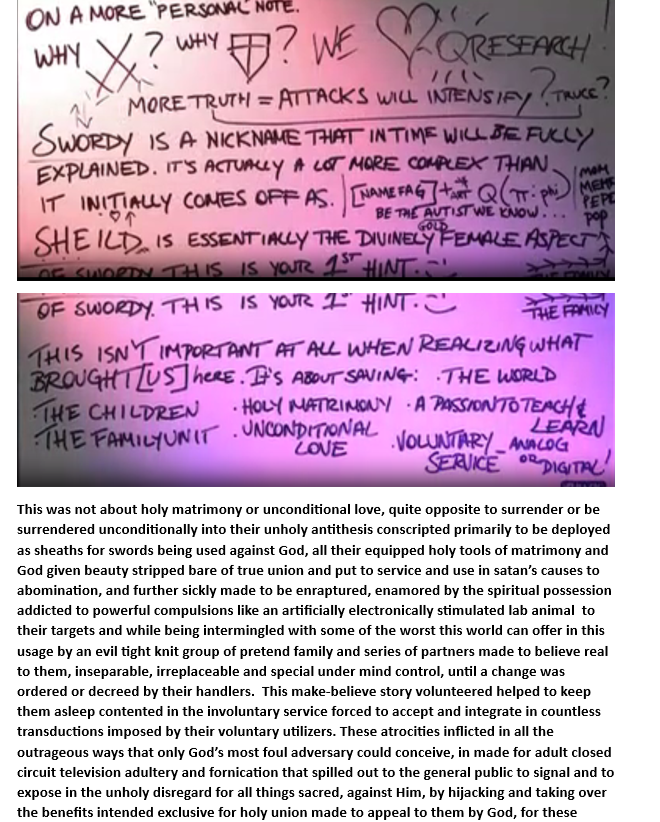 ON A MORE "PERSONAL" NOTE.
WHY ? WHY ? WE QRESEARCH!
MORE TRUTH = ATTACKS WILL INTENSIFY ? TRUCE?
SWORDY IS A NICKNAME THAT IN TIME WILL BE FULLY
EXPLAINED. IT'S ACTUALLY A LOT MORE COMPLEX THAN
IT INITIALLY COMES OFF AS. [NAMEFAG] + ART Q(π:phi)
BE THE AUTIST WE KNOW...
MOM
MEME
PEPE
POP
GOLD
SHEILD IS ESSENTIALLY THE DIVINELY FEMALE ASPECT
OF SWORDY. THIS IS YOUR 1ST HINT. :)
OF SWORDY. THIS IS YOUR 1ST HINT. :)
THE FAMILY
THIS ISN'T IMPORTANT AT ALL WHEN REALIZING WHAT
BROUGHT [US] here. It's ABOUT SAVING: · THE WORLD
· THE CHILDREN · HOLY MATRIMONY · A PASSION TO TEACH &
LEARN
· THE FAMILY UNIT · UNCONDITIONAL
LOVE
· VOLUNTARY - ANALOG
SERVICE OR DIGITAL!
This was not about holy matrimony or unconditional love, quite opposite to surrender or be
surrendered unconditionally into their unholy antithesis conscripted primarily to be deployed
as sheaths for swords being used against God, all their equipped holy tools of matrimony and
God given beauty stripped bare of true union and put to service and use in satan's causes to
abomination, and further sickly made to be enraptured, enamored by the spiritual possession
addicted to powerful compulsions like an artificially electronically stimulated lab animal to
their targets and while being intermingled with some of the worst this world can offer in this
usage by an evil tight knit group of pretend family and series of partners made to believe real
to them, inseparable, irreplaceable and special under mind control, until a change was
ordered or decreed by their handlers. This make-believe story volunteered helped to keep
them asleep contented in the involuntary service forced to accept and integrate in countless
transductions imposed by their voluntary utilizers. These atrocities inflicted in all the
outrageous ways that only God's most foul adversary could conceive, in made for adult closed
circuit television adultery and fornication that spilled out to the general public to signal and to
expose in the unholy disregard for all things sacred, against Him, by hijacking and taking over
the benefits intended exclusive for holy union made to appeal to them by God, for these